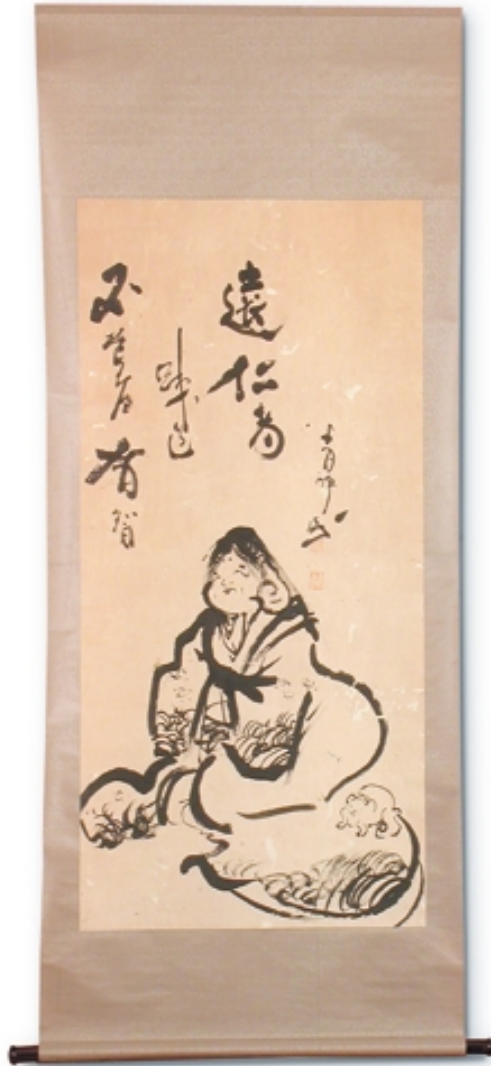 遠仁者
疎道
不苦者有智